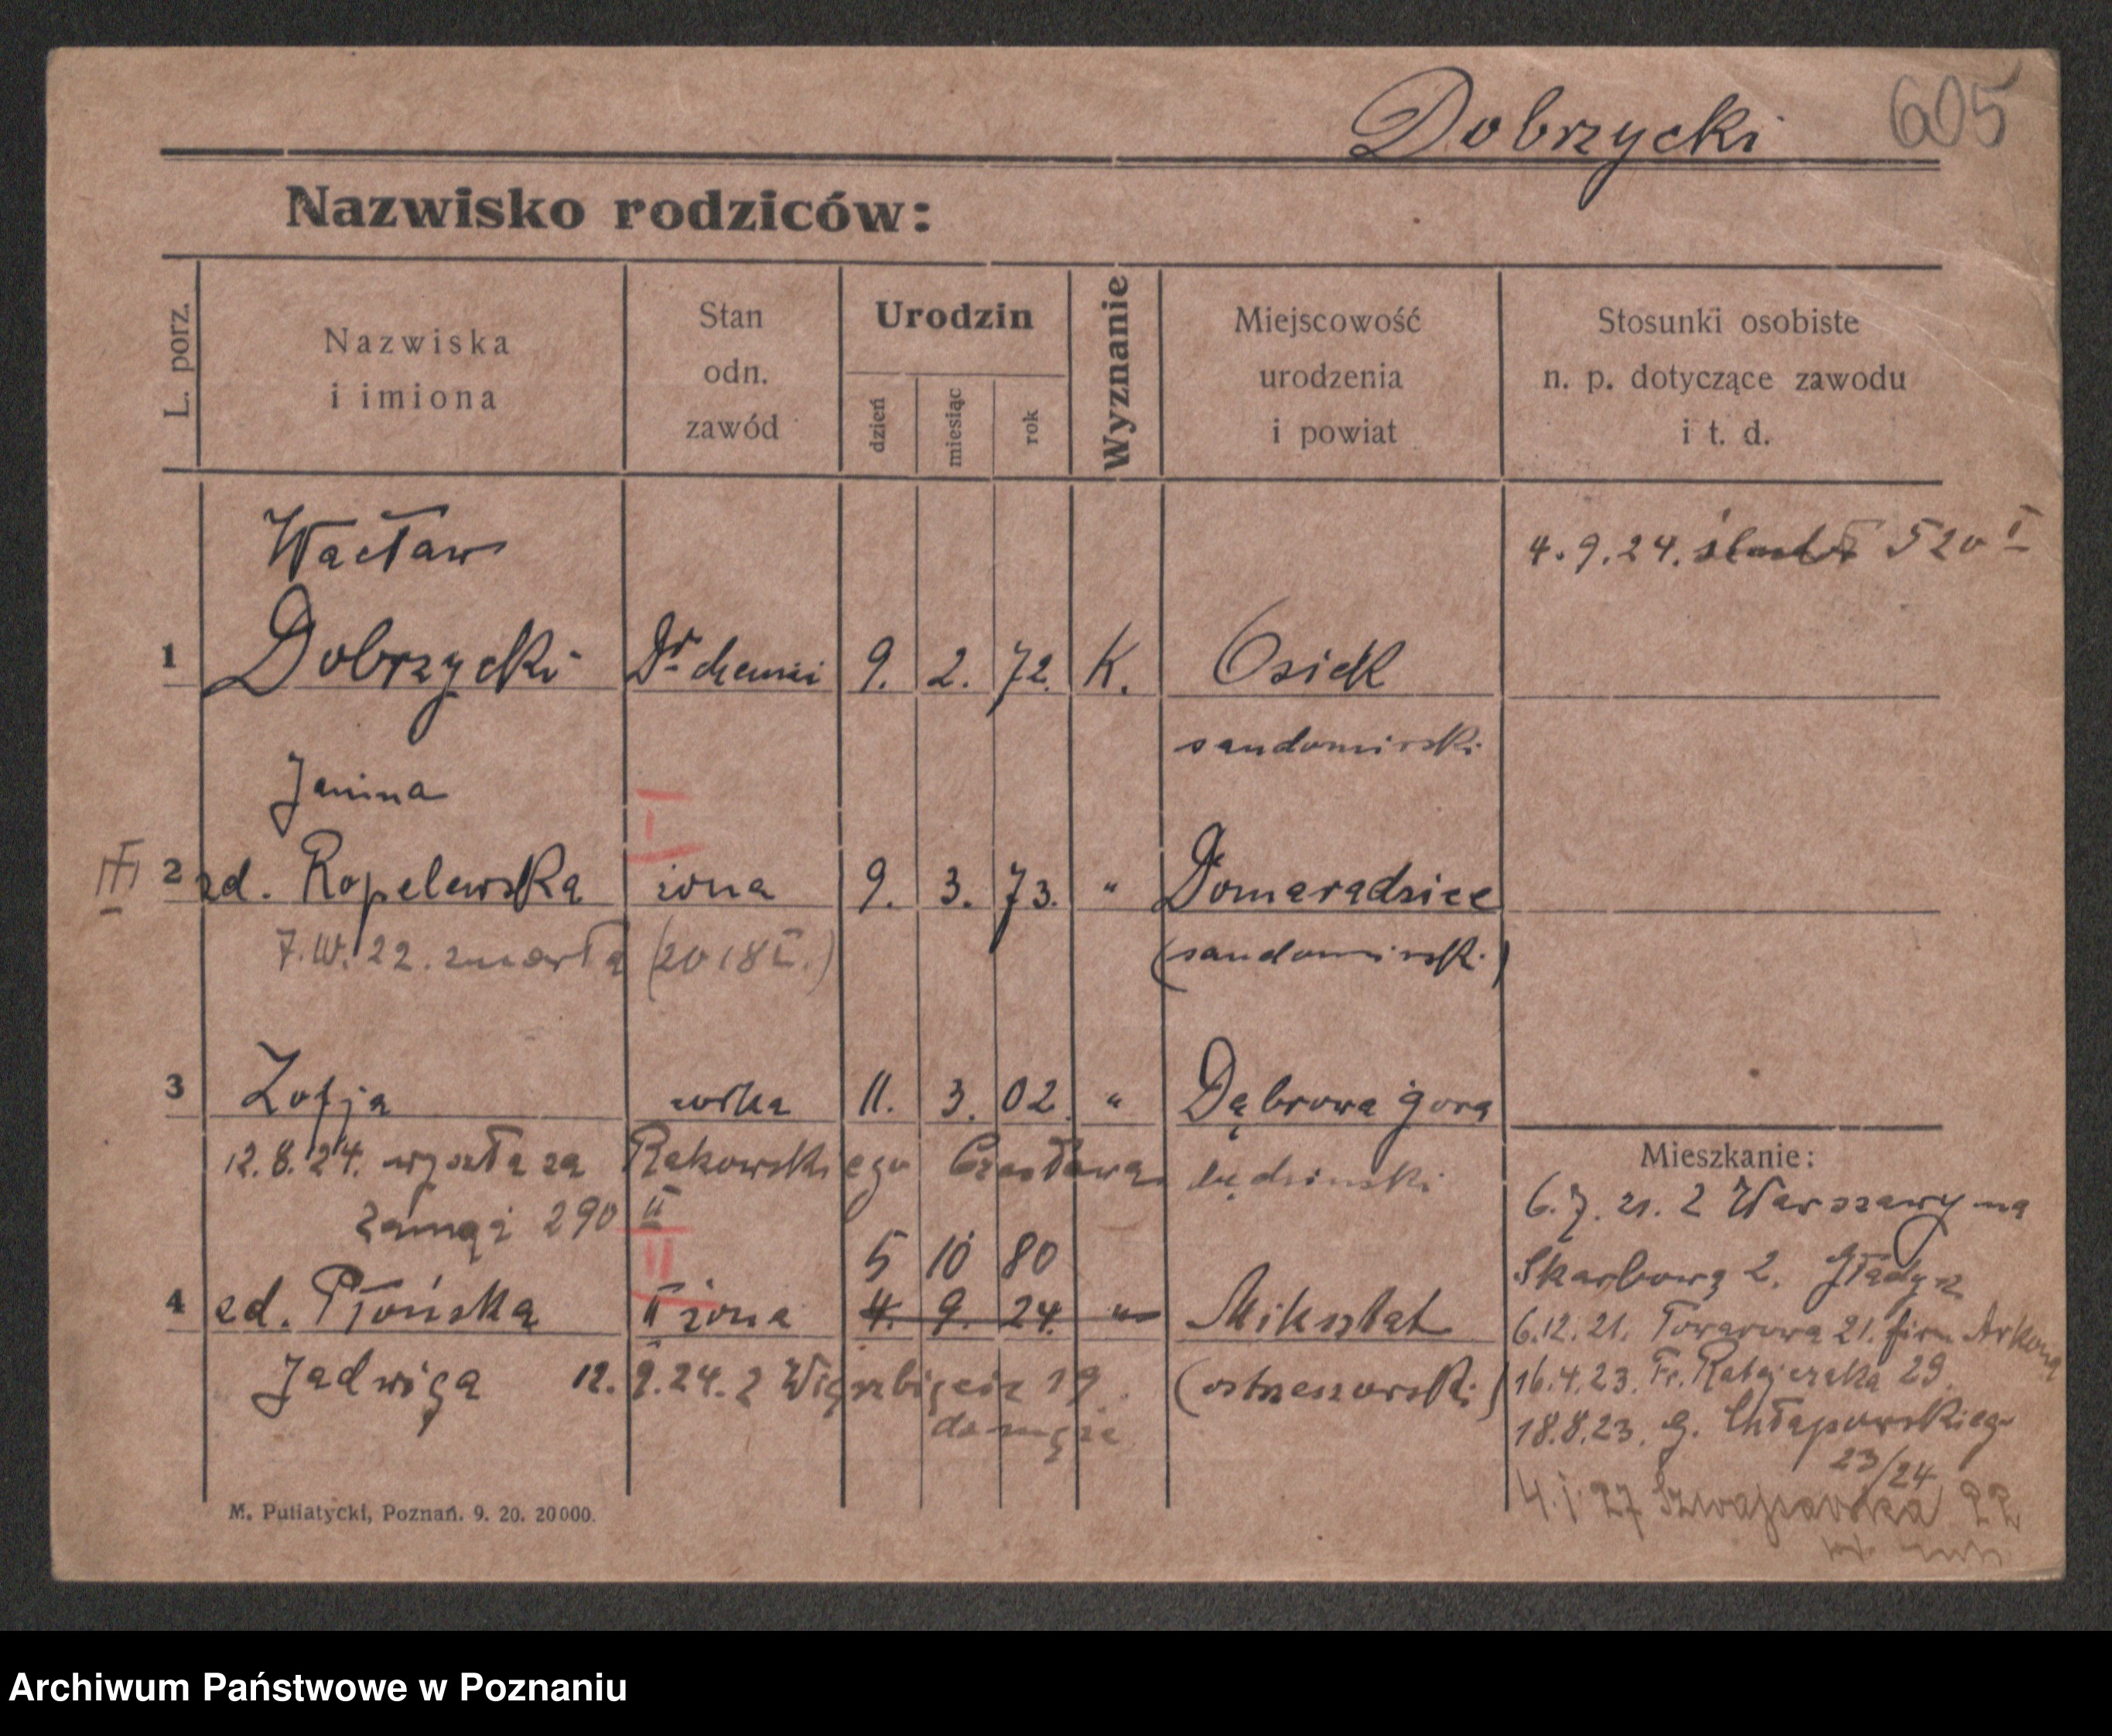 Dobrzycki 605
Nazwisko rodziców:
L. porz.
Nazwiska
i imiona
Stan
odn.
zawód
Urodzin
dzień
miesiąc
rok
Wyznanie
Miejscowość
urodzenia
i powiat
Stosunki osobiste
n. p. dotyczące zawodu
i t. d.
Wacław 4.9.24. 520 I
1 Dobrzycki Dr chemii 9. 2. 72. K. Osiek
sandomirski
Janina I
III 2 zd. Kopelewska żona 9. 3. 73. " Domaradzice
7.IV.22. zmarła (2018 I.) (sandomirski)
3 Zofja córka 11. 3. 02. " Dąbrowa góra
12.8.24. wyszła za Rakowskiego Czesława będzinski
zamąż 290 II
II 5 10 80
4 zd. Płońska II żona 4. 9. 24. " Mikstat
Jadwiga 12.9.24. z Wierzbięcic 19. (ostrzeszowski)
do męża
Mieszkanie:
6.7.21. z Warszawy na
Skarbową 2. Gładysz
6.12.21. Towarowa 21. firm. Arkona
16.4.23. Fr. Ratajczaka 29.
18.8.23. g. Chłapowskiego
23/24
4.1.27 Szwajcarska 22
M. Putiatycki, Poznań. 9. 20. 20000.
Archiwum Państwowe w Poznaniu